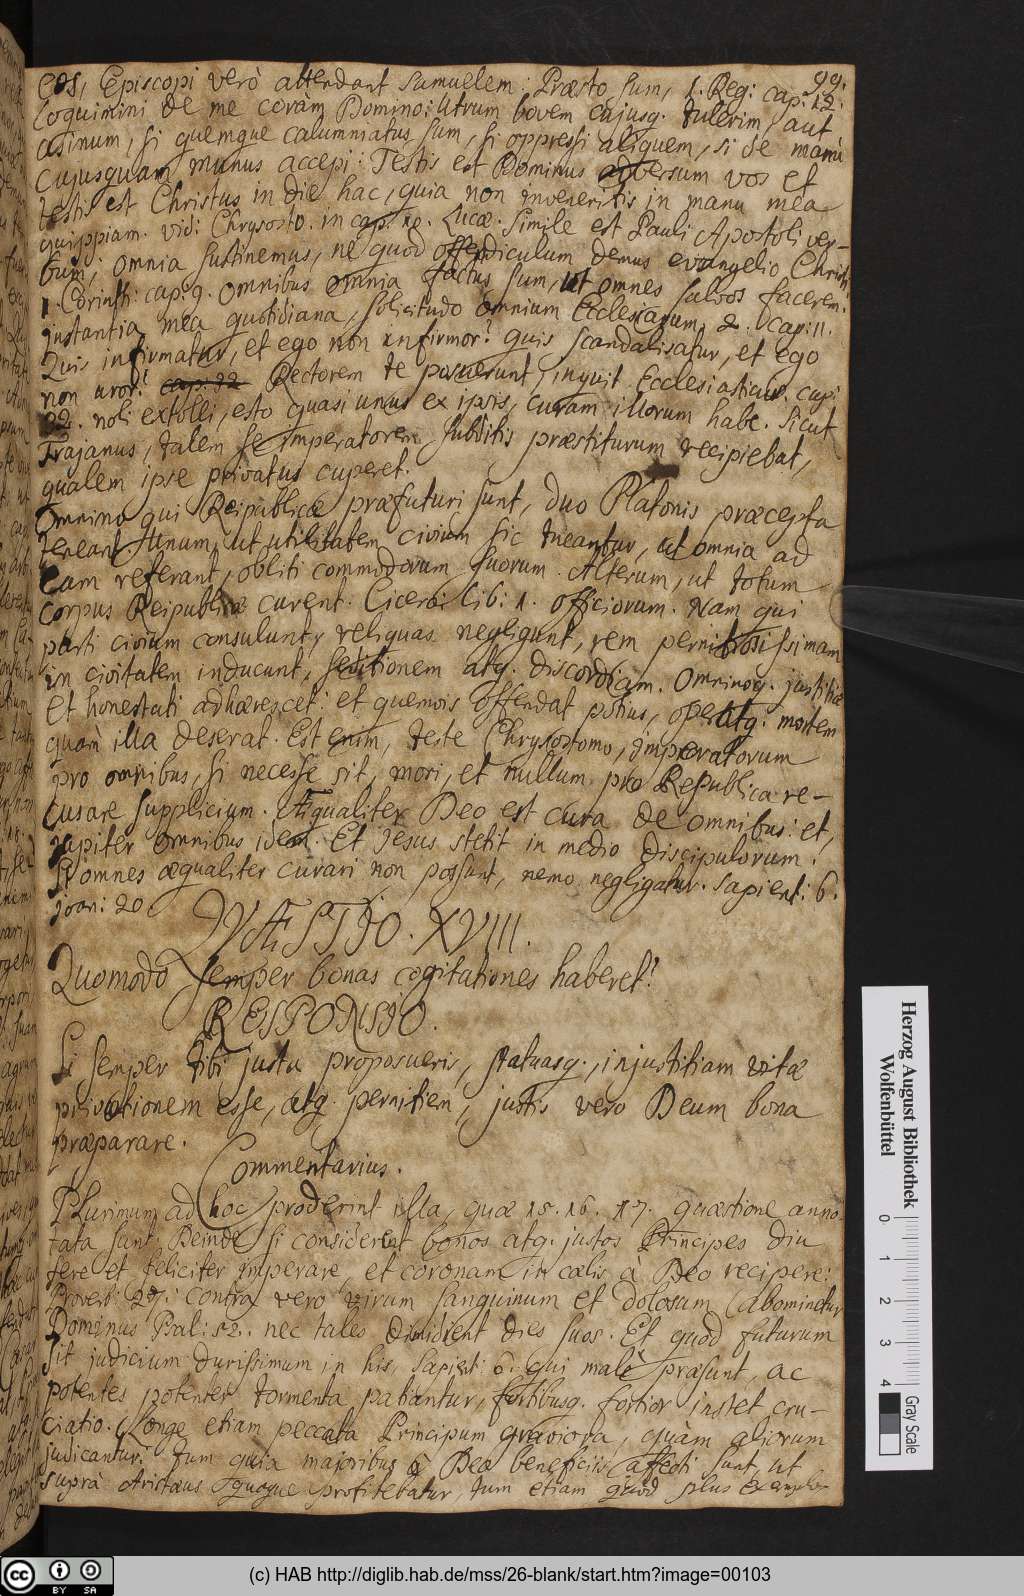 99.
eos, Episcopi verò attendant Samuelem: Præsto sum, 1. Reg: cap: 12.
loquimini de me coram Domino: Utrum bovem cujusq. tulerim, aut
asinum, si quemque calumniatus sum, si oppressi aliquem, si de manu
cujusquam munus accepi: Testis est Dominus adversum vos et
testis est Christus in die hac, quia non inveneritis in manu mea
quippiam. vid: Chrysosto. in cap. Lucæ. Simile est Pauli Apostoli ver-
bum; omnia sustinemus, ne quod offendiculum demus evangelio Christi
1. Corinth: cap: 9. Omnibus omnia factus sum, ut omnes salvos facerem.
instantia mea quotidiana, solicitudo omnium Ecclesiarum, 2. Cap: 11.
Quis infirmatur, et ego non infirmor? quis scandalisatur, et ego
non uror? cap: 32 Rectorem te posuerunt, inquit Ecclesiasticus. cap:
32. noli extolli, esto quasi unus ex ipsis, curam illorum habe. Sicut
Trajanus, talem se Imperatorem subditis præstiturum recipiebat,
qualem ipse privatus cuperet.
Omnino qui Reipublicæ præfuturi sunt, duo Platonis præcepta
teneant. Unum, ut utilitatem civium sic tueantur, ut omnia ad
eam referant, obliti commodorum suorum. Alterum, ut totum
corpus Reipublicæ curent. Cicero: lib: 1. officiorum. Nam qui
parti civium consulunt, reliquas negligunt, rem pernitiosissimam
in civitatem inducunt, seditionem atq. discordiam. Omninoq. justitiæ
et honestati adhærescet: et quemvis offendat potius, atq. mortem
quàm illa deserat. Est enim, teste Chrysostomo, Imperatorum
pro omnibus, si necesse sit, mori, et nullum pro Republica re-
cusare supplicium. Æqualiter Deo est cura de omnibus: et,
Jupiter omnibus idem. Et Jesus stetit in medio discipulorum.
Si omnes æqualiter curari non possunt, nemo negligatur. Sapient: 6.
Joan: 20.
QVÆSTIO. XVIII.
Quomodo semper bonas cogitationes haberet?
RESPONSIO.
Si semper tibi justa proposueris, statuasq., injustitiam vitæ
privationem esse, atq. pernitiem, justis vero Deum bona
præparare.
Commentarius.
Plurimum ad hoc proderint illa, quæ 15. 16. 17. quæstione anno-
tata sunt. Deinde si considerent bonos atq. justos Principes diu
fere et feliciter imperare, et coronam in cœlis à Deo recipere:
Proverb: 29.: contra vero virum sanguinum et dolosum abominetur
Dominus Psal: 52.. nec tales dimidient dies suos. Et quod futurum
sit judicium durissimum in his, Sapient: 6. qui malè præsunt, ac
potentes potenter tormenta patiantur, fortibusq. fortior instet cru-
ciatio. Longe etiam peccata Principum graviora, quàm aliorum
judicantur: tum quia majoribus à Deo beneficiis affecti sunt, ut
suprà Aristæus quoque profitebatur, tum etiam quod plus exemplo
Herzog August Bibliothek
Wolfenbüttel
0 1 2 3 4
Gray Scale
cc BY SA
(c) HAB http://diglib.hab.de/mss/26-blank/start.htm?image=00103